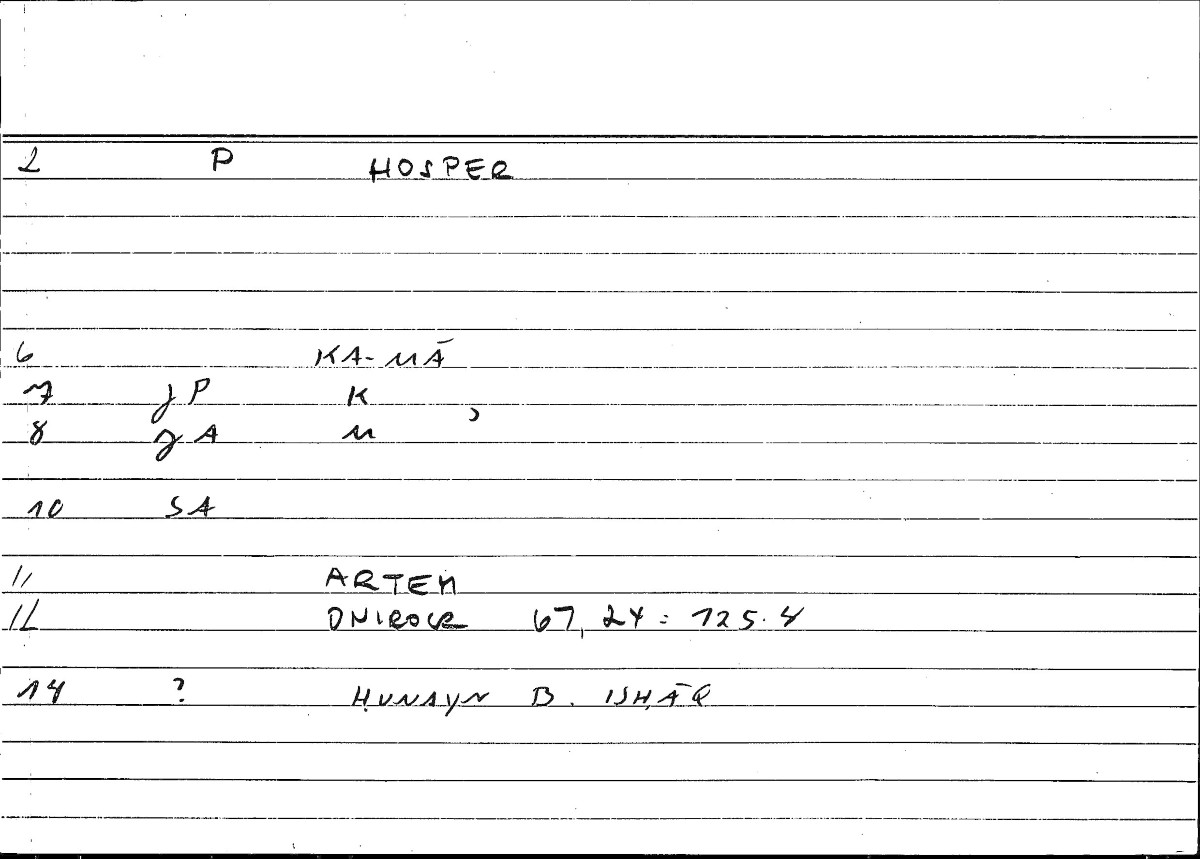 2 P HOSPER
6 KA-MĀ
7 γP K
8 γA M ʾ
10 SA
11 ARTEM
12 ONIROCR 67,24 = 125.4
14 ? ḤUNAYN B. ISḤĀQ